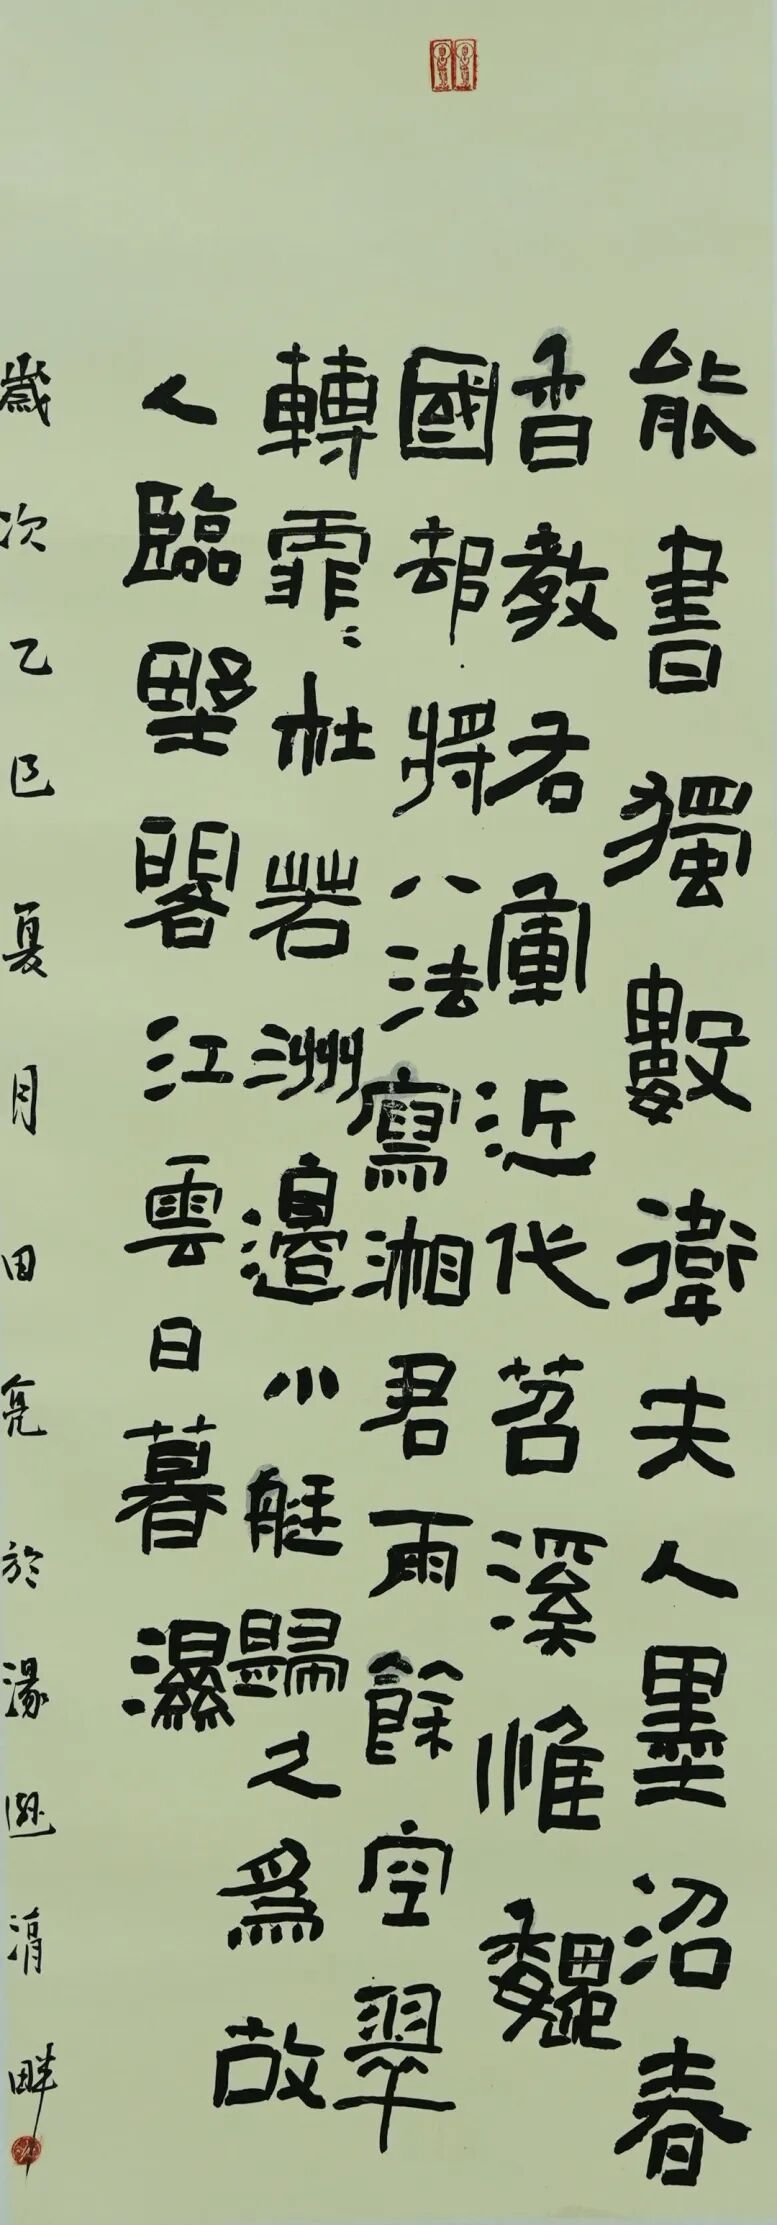 能書獨數衛夫人墨沼春
香教右軍近代苕溪惟魏
國却將八法寫湘君雨餘空翠
轉霏〻杜若洲邊小艇歸久為故
人臨墅畧江雲日暮濕
歲次乙巳夏月田亮於濠遯涓畔